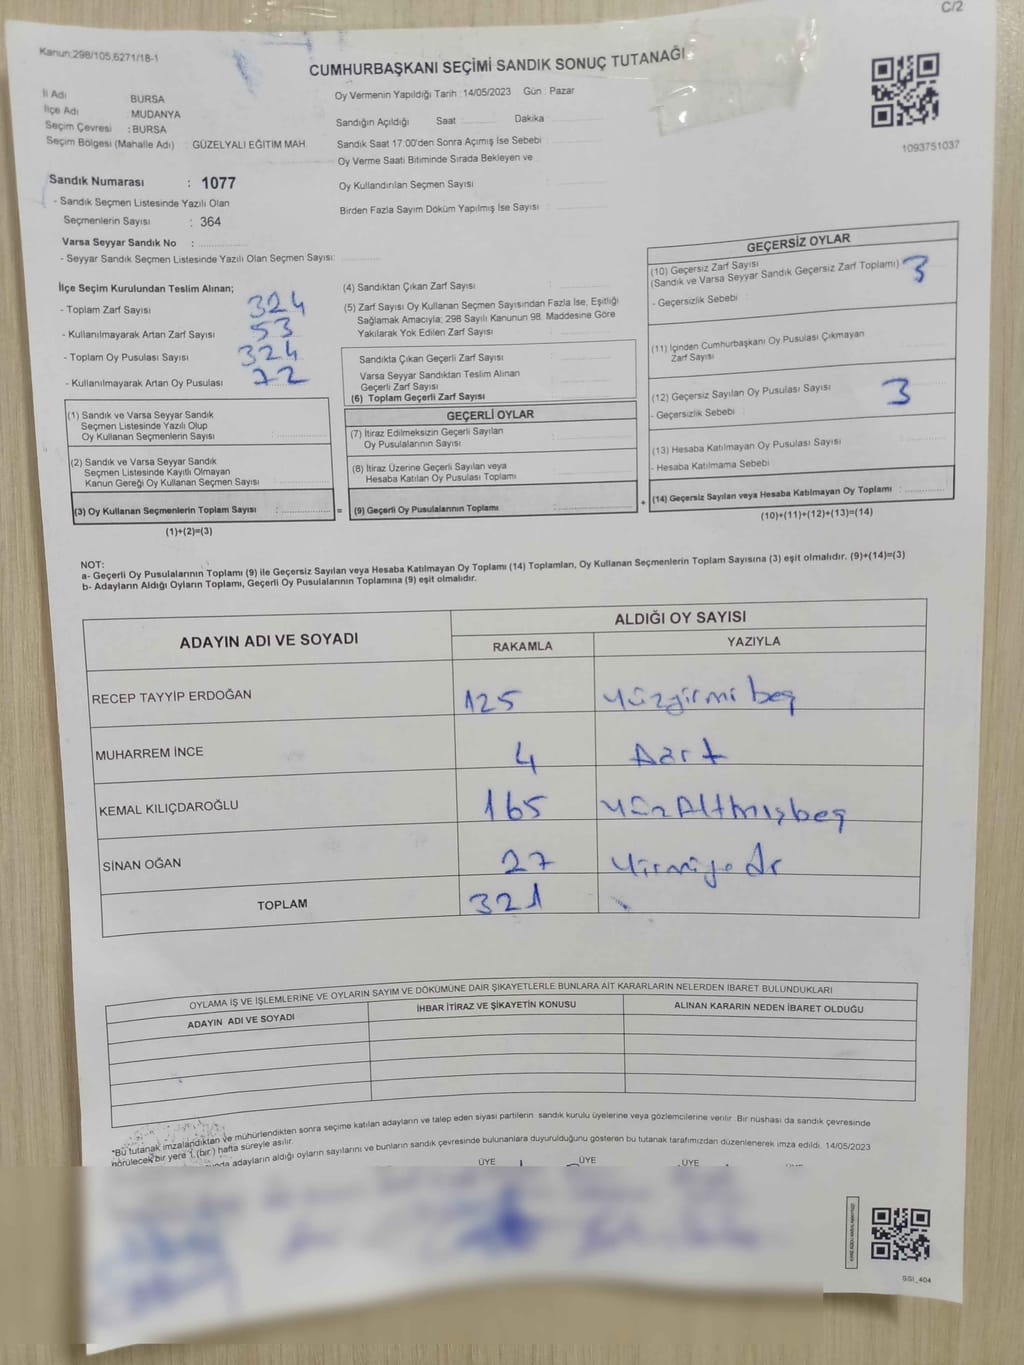 C/2
Kanun:298/105,6271/18-1
CUMHURBAŞKANI SEÇİMİ SANDIK SONUÇ TUTANAĞI
İl Adı BURSA
İlçe Adı MUDANYA
Seçim Çevresi : BURSA
Seçim Bölgesi (Mahalle Adı) : GÜZELYALI EĞİTİM MAH
Oy Vermenin Yapıldığı Tarih : 14/05/2023 Gün : Pazar
Sandığın Açıldığı Saat Dakika
Sandık Saat 17:00'den Sonra Açımış İse Sebebi
Oy Verme Saati Bitiminde Sırada Bekleyen ve
Oy Kullandırılan Seçmen Sayısı :
Birden Fazla Sayım Döküm Yapılmış İse Sayısı :
1093751037
Sandık Numarası : 1077
- Sandık Seçmen Listesinde Yazılı Olan
Seçmenlerin Sayısı : 364
Varsa Seyyar Sandık No :
- Seyyar Sandık Seçmen Listesinde Yazılı Olan Seçmen Sayısı:
İlçe Seçim Kurulundan Teslim Alınan;
- Toplam Zarf Sayısı 324
- Kullanılmayarak Artan Zarf Sayısı 53
- Toplam Oy Pusulası Sayısı 324
- Kullanılmayarak Artan Oy Pusulası 72
(1) Sandık ve Varsa Seyyar Sandık
Seçmen Listesinde Yazılı Olup
Oy Kullanan Seçmenlerin Sayısı :
(2) Sandık ve Varsa Seyyar Sandık
Seçmen Listesinde Kayıtlı Olmayan
Kanun Gereği Oy Kullanan Seçmen Sayısı :
(3) Oy Kullanan Seçmenlerin Toplam Sayısı : =
(1)+(2)=(3)
(4) Sandıktan Çıkan Zarf Sayısı :
(5) Zarf Sayısı Oy Kullanan Seçmen Sayısından Fazla İse, Eşitliği
Sağlamak Amacıyla; 298 Sayılı Kanunun 98. Maddesine Göre
Yakılarak Yok Edilen Zarf Sayısı :
Sandıkta Çıkan Geçerli Zarf Sayısı :
Varsa Seyyar Sandıktan Teslim Alınan
Geçerli Zarf Sayısı :
(6) Toplam Geçerli Zarf Sayısı :
GEÇERLİ OYLAR
(7) İtiraz Edilmeksizin Geçerli Sayılan
Oy Pusulalarının Sayısı :
(8) İtiraz Üzerine Geçerli Sayılan veya
Hesaba Katılan Oy Pusulası Toplamı :
(9) Geçerli Oy Pusulalarının Toplamı : +
GEÇERSİZ OYLAR
(10) Geçersiz Zarf Sayısı
(Sandık ve Varsa Seyyar Sandık Geçersiz Zarf Toplamı) 3
- Geçersizlik Sebebi :
(11) İçinden Cumhurbaşkanı Oy Pusulası Çıkmayan
Zarf Sayısı :
(12) Geçersiz Sayılan Oy Pusulası Sayısı 3
- Geçersizlik Sebebi :
(13) Hesaba Katılmayan Oy Pusulası Sayısı :
- Hesaba Katılmama Sebebi :
(14) Geçersiz Sayılan veya Hesaba Katılmayan Oy Toplamı :
(10)+(11)+(12)+(13)=(14)
NOT:
a- Geçerli Oy Pusulalarının Toplamı (9) ile Geçersiz Sayılan veya Hesaba Katılmayan Oy Toplamı (14) Toplamları, Oy Kullanan Seçmenlerin Toplam Sayısına (3) eşit olmalıdır. (9)+(14)=(3)
b- Adayların Aldığı Oyların Toplamı, Geçerli Oy Pusulalarının Toplamına (9) eşit olmalıdır.
ADAYIN ADI VE SOYADI ALDIĞI OY SAYISI
RAKAMLA YAZIYLA
RECEP TAYYİP ERDOĞAN 125 Yüzyirmi beş
MUHARREM İNCE 4 Dört
KEMAL KILIÇDAROĞLU 165 YüzAltmışbeş
SİNAN OĞAN 27 Yirmiyedi
TOPLAM 321
OYLAMA İŞ VE İŞLEMLERİNE VE OYLARIN SAYIM VE DÖKÜMÜNE DAİR ŞİKAYETLERLE BUNLARA AİT KARARLARIN NELERDEN İBARET BULUNDUKLARI
ADAYIN ADI VE SOYADI İHBAR İTİRAZ VE ŞİKAYETİN KONUSU ALINAN KARARIN NEDEN İBARET OLDUĞU
*Bu tutanak imzalandıktan ve mühürlendikten sonra seçime katılan adayların ve talep eden siyasi partilerin sandık kurulu üyelerine veya gözlemcilerine verilir. Bir nüshası da sandık çevresinde
görülecek bir yere 1 (bir) hafta süreyle asılır.
adayların aldığı oyların sayılarını ve bunların sandık çevresinde bulunanlara duyurulduğunu gösteren bu tutanak tarafımızdan düzenlenerek imza edildi. 14/05/2023
ÜYE ÜYE ÜYE
SSI_404